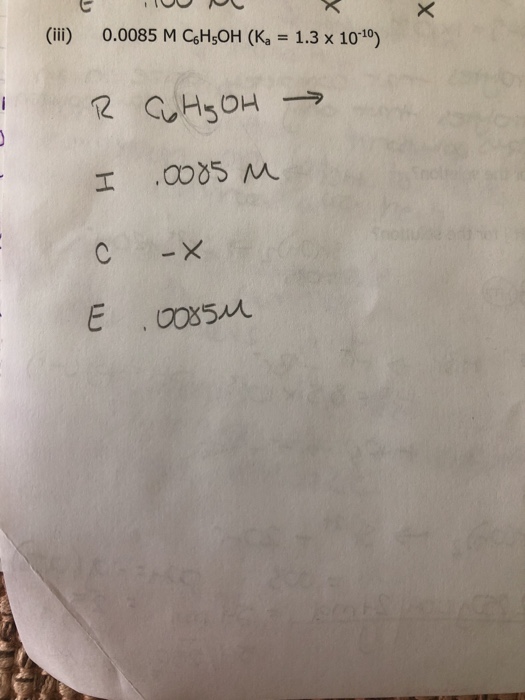 E .100 M x x
(iii) 0.0085 M C₆H₅OH (Kₐ = 1.3 x 10⁻¹⁰)
R C₆H₅OH →
I .0085 M
C -x
E .0085M